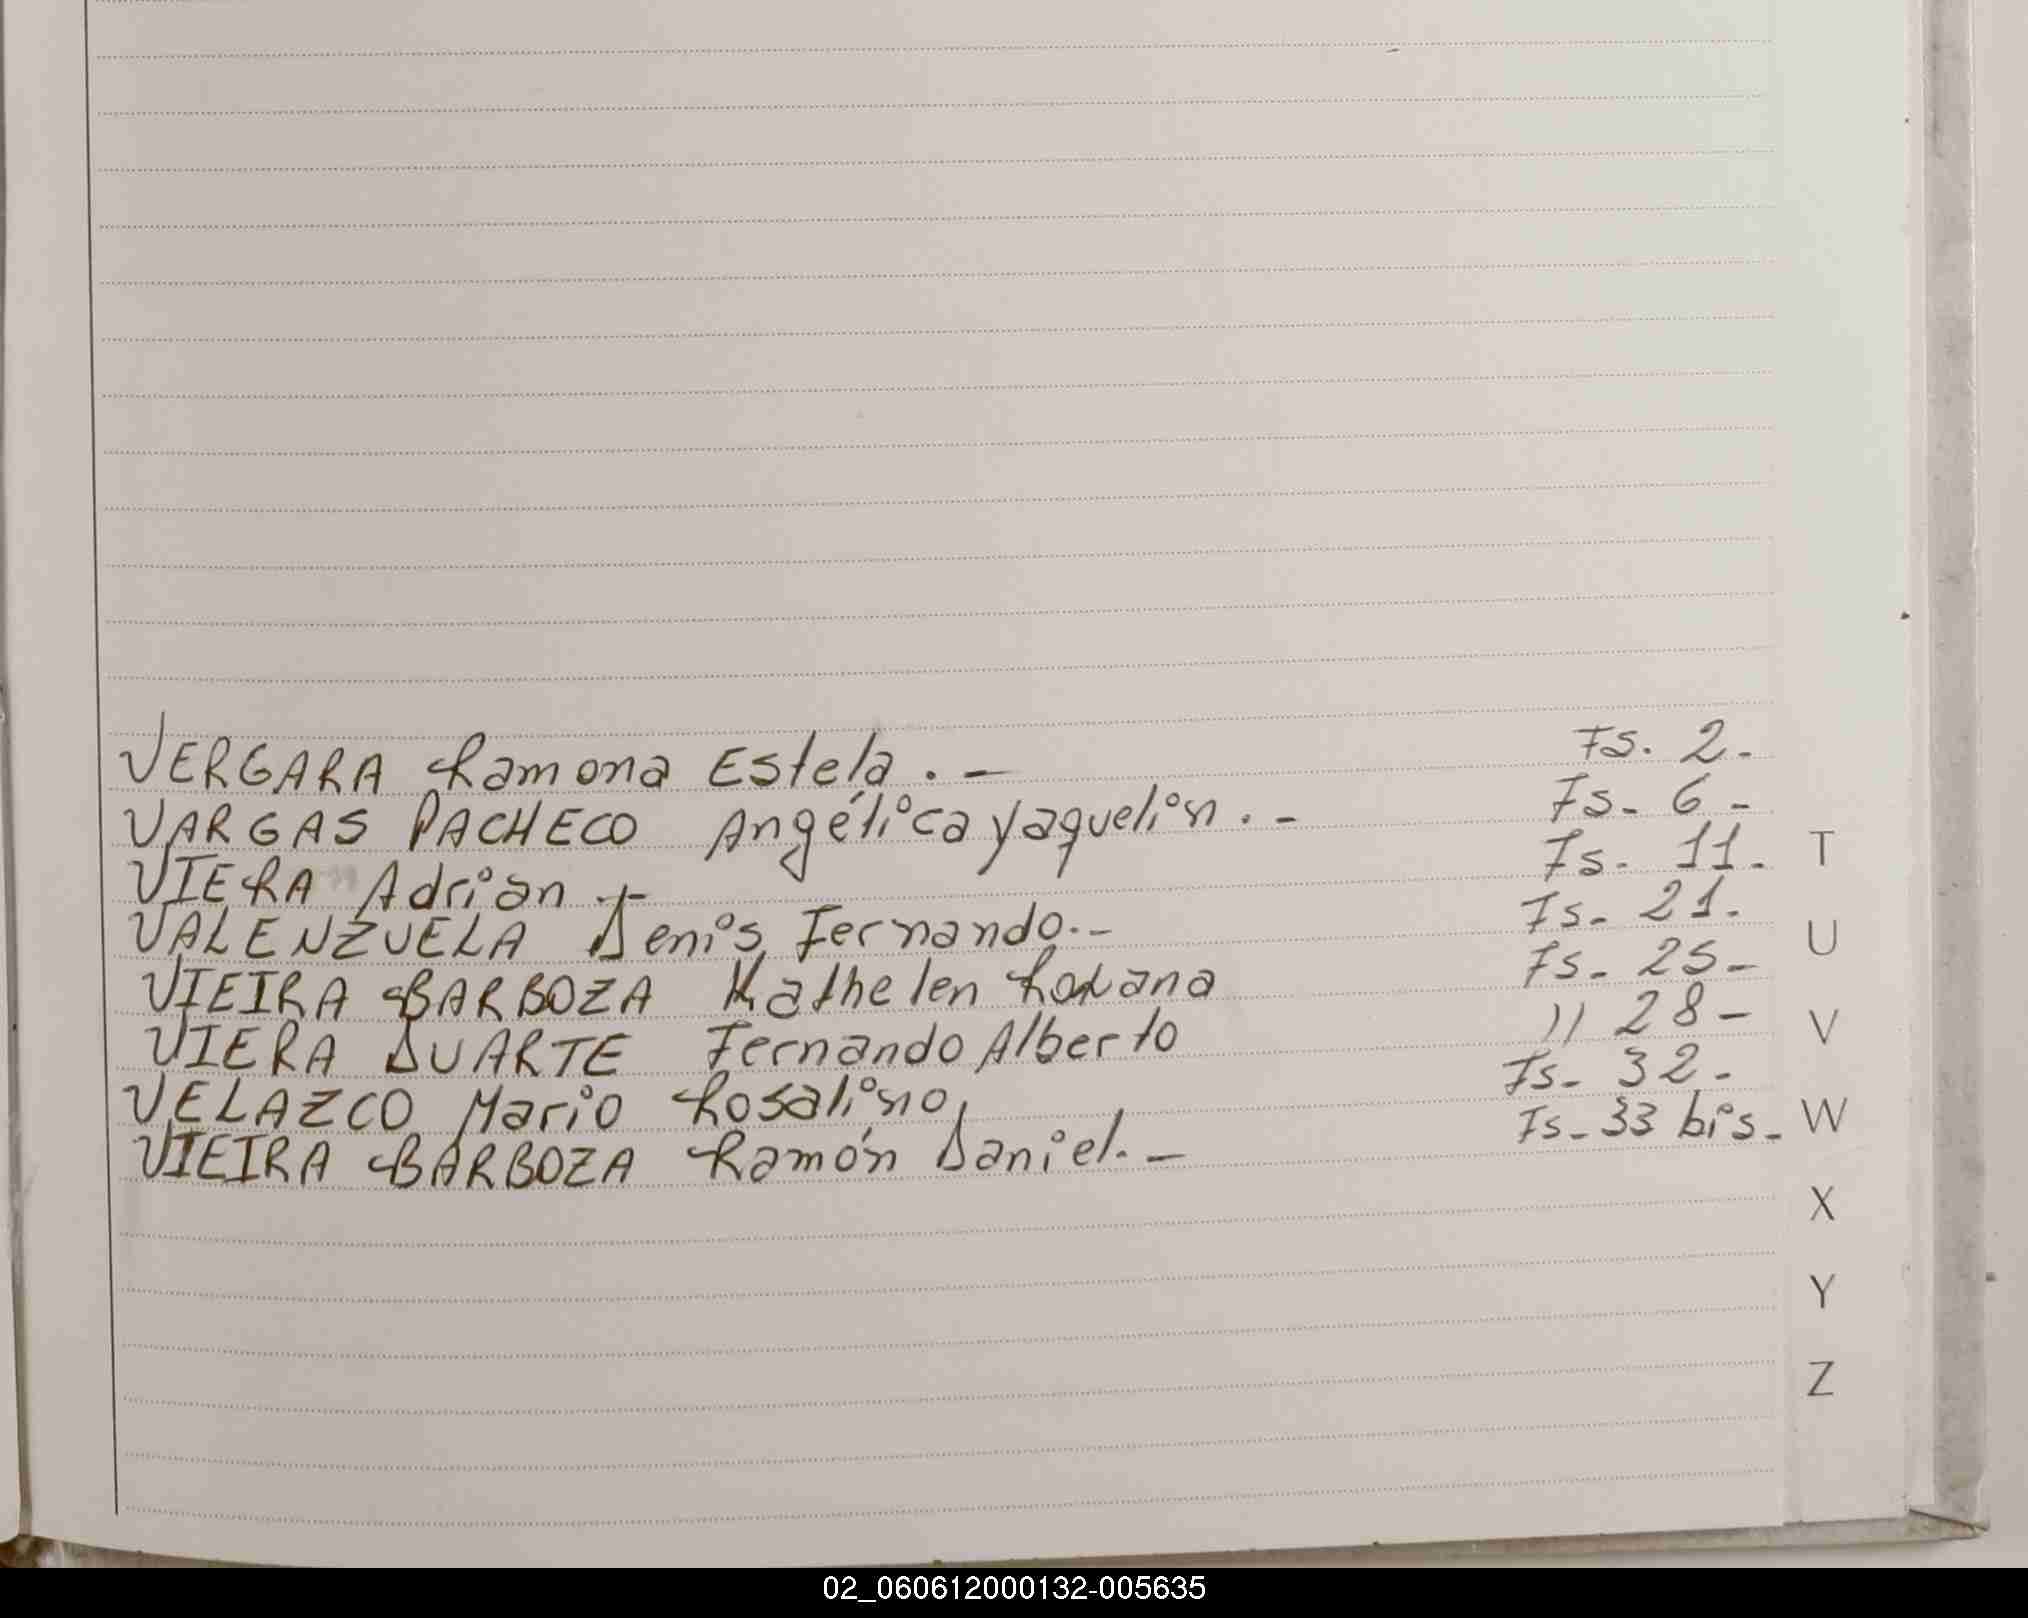 VERGARA Ramona Estela . - Fs. 2.-
VARGAS PACHECO Angélica Yaquelin . - Fs. 6 -
VIERA Adrian .- Fs. 11.
VALENZUELA Denis Fernando.- Fs. 21.
VIEIRA BARBOZA Kathelen Roxana Fs. 25-
VIERA DUARTE Fernando Alberto " 28 -
VELAZCO Mario Rosalino Fs. 32.
VIEIRA BARBOZA Ramón Daniel.- Fs. 33 bis.
T
U
V
W
X
Y
Z
02_060612000132-005635